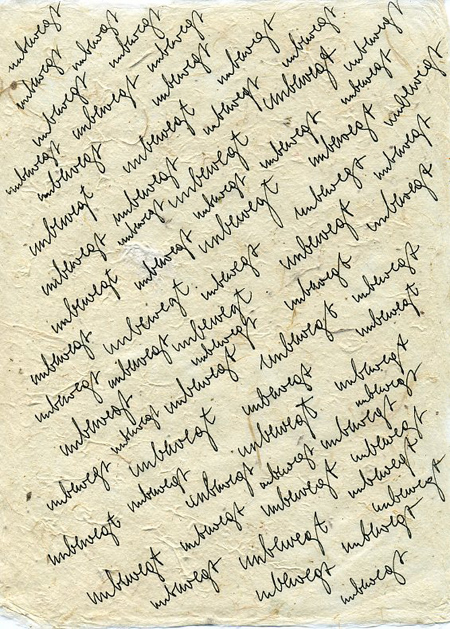 unbewegt unbewegt unbewegt unbewegt unbewegt unbewegt unbewegt
unbewegt unbewegt unbewegt unbewegt
unbewegt unbewegt unbewegt unbewegt
unbewegt unbewegt unbewegt unbewegt unbewegt unbewegt
unbewegt unbewegt unbewegt unbewegt unbewegt unbewegt
unbewegt unbewegt unbewegt unbewegt
unbewegt unbewegt unbewegt unbewegt unbewegt
unbewegt unbewegt unbewegt unbewegt unbewegt
unbewegt unbewegt unbewegt unbewegt unbewegt
unbewegt unbewegt unbewegt unbewegt unbewegt
unbewegt unbewegt unbewegt unbewegt unbewegt unbewegt
unbewegt unbewegt unbewegt unbewegt unbewegt unbewegt unbewegt
unbewegt unbewegt unbewegt unbewegt
unbewegt unbewegt unbewegt unbewegt